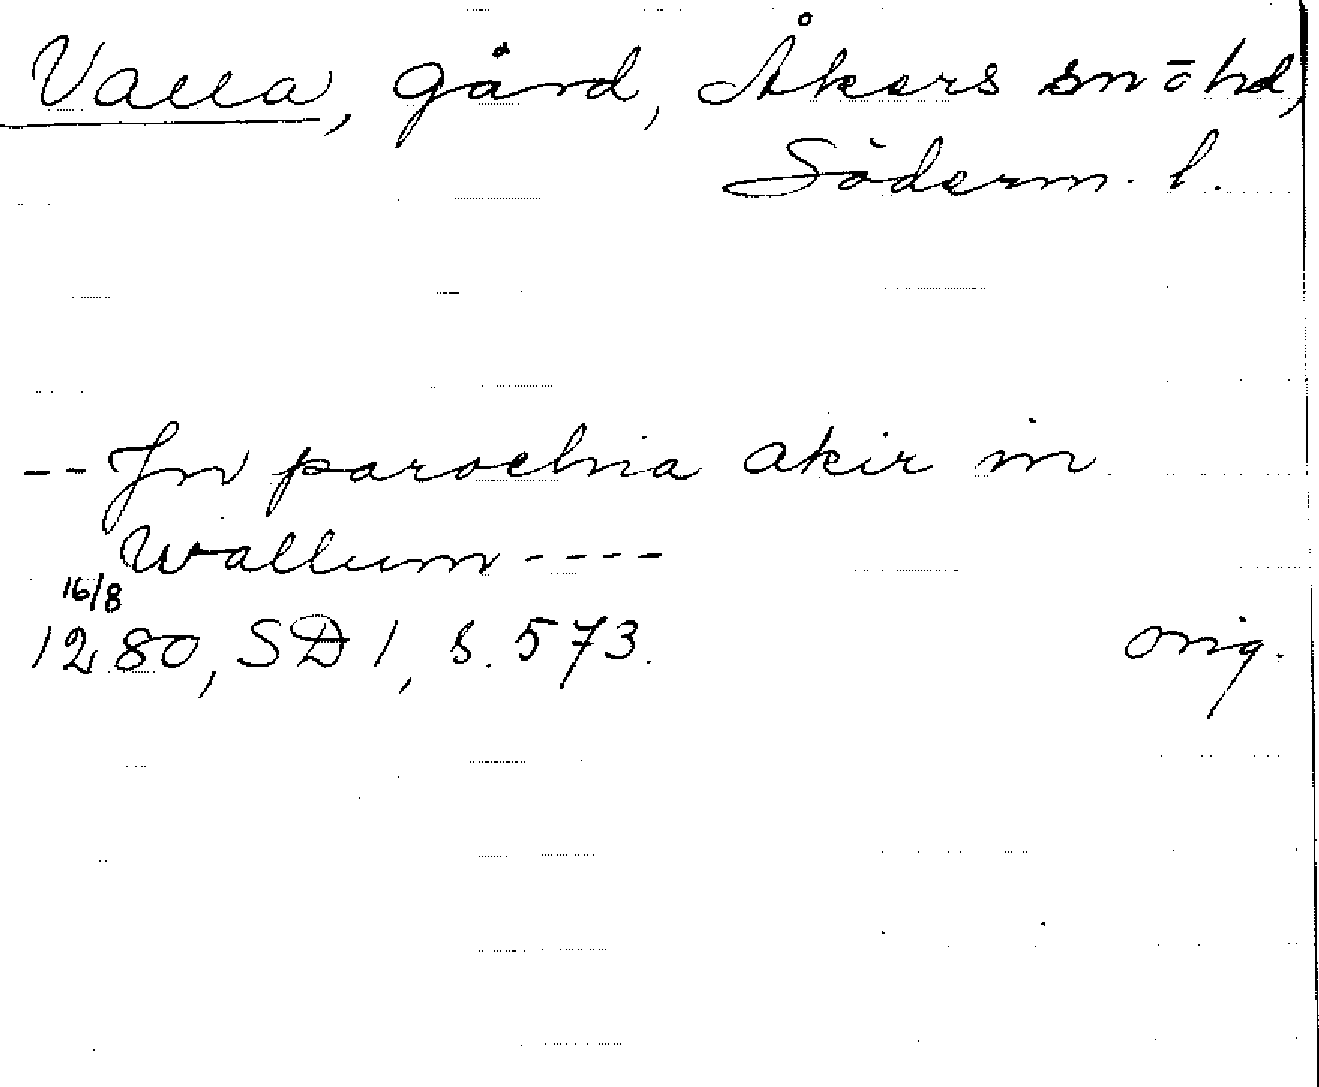 Valla, gård, Åkers sn o hd,
Söderm. l.
-- Jn parochia akir in
Wallum ----
16/8
1280, SD 1, s. 573. orig.